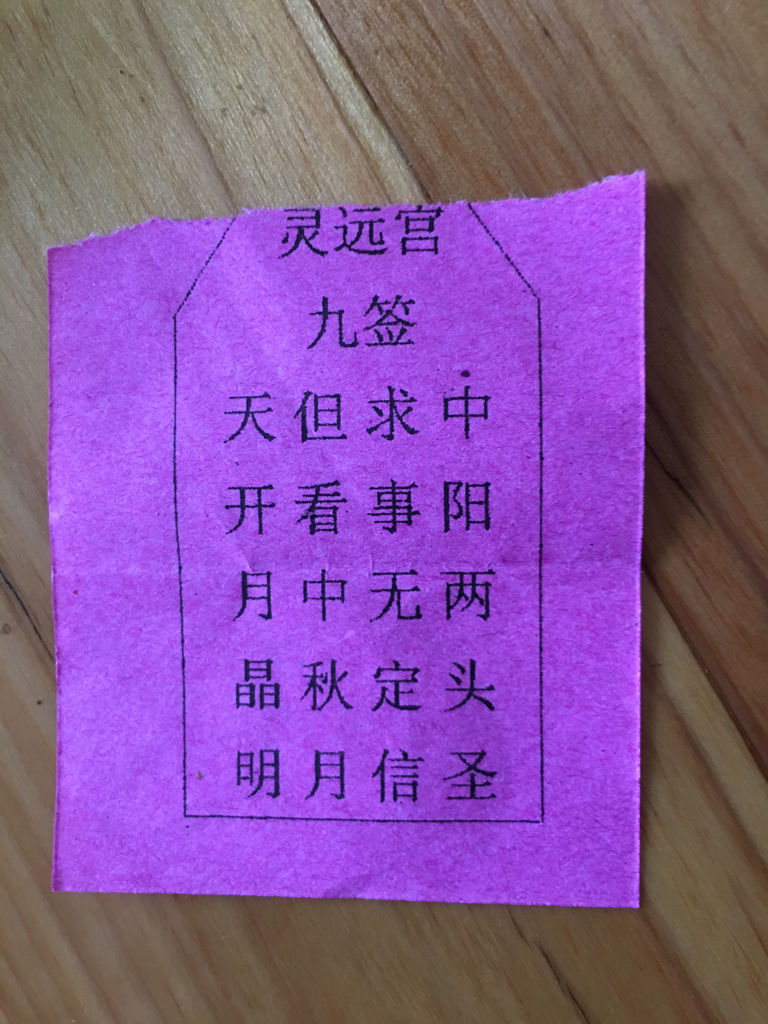 灵远宫
九签
中阳两头圣
求事无定信
但看中秋月
天开月晶明